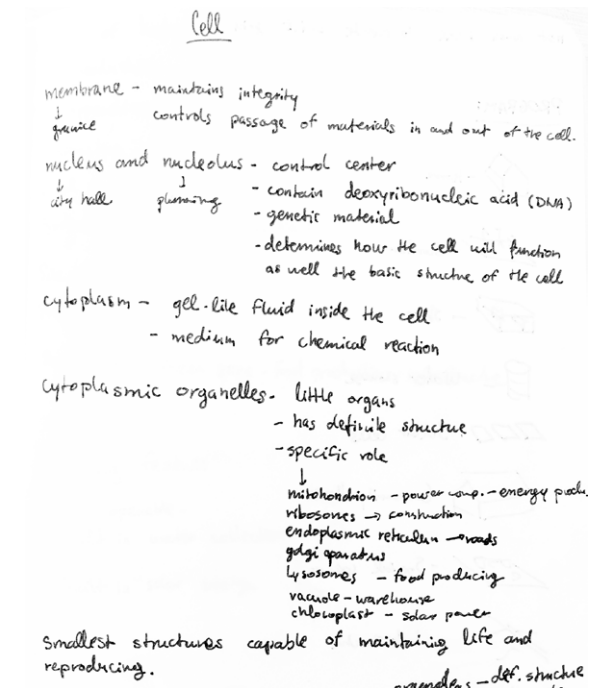 Cell
membrane - maintains integrity
↓ controls passage of materials in and out of the cell.
nucleus and nucleolus - control center
↓ ↓ - contain deoxyribonucleic acid (DNA)
city hall - genetic material
- determines how the cell will function
as well the basic structue of the cell
cytoplasm - gel-like fluid inside the cell
- medium for chemical reaction
cytoplasmic organelles - little organs
- has definite structue
- specific role
↓
mitohondrion - power comp. - energy produ.
ribosones → construction
endoplasmic reticulun → roads
golgi aparatus
lysosomes - food producing
vacuole - warehouse
chloroplast - solar power
Smallest structures capable of maintaining life and
reproducing.
- def. structue